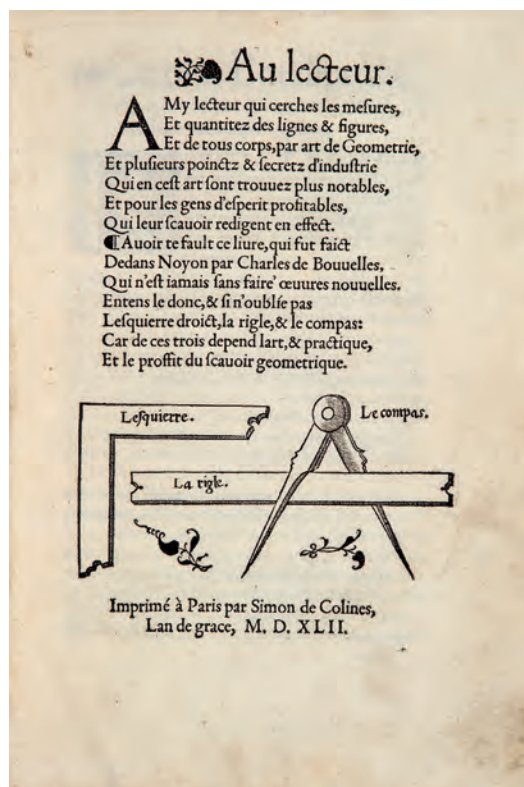 Au lecteur.
AMy lecteur qui cerches les meſures,
Et quantitez des lignes & figures,
Et de tous corps, par art de Geometrie,
Et pluſieurs poinctz & ſecretz d'induſtrie
Qui en ceſt art ſont trouuez plus notables,
Et pour les gens d'eſperit profitables,
Qui leur ſcauoir redigent en effect.
¶Auoir te fault ce liure, qui fut faict
Dedans Noyon par Charles de Bouuelles,
Qui n'eſt iamais ſans faire' œuures nouuelles.
Entens le donc, & ſi n'oublíe pas
Leſquierre droict, la rigle, & le compas:
Car de ces trois depend lart, & practique,
Et le proffit du ſcauoir geometrique.
Leſquierre.
Le compas.
La rigle.
Imprimé à Paris par Simon de Colines,
Lan de grace, M. D. XLII.